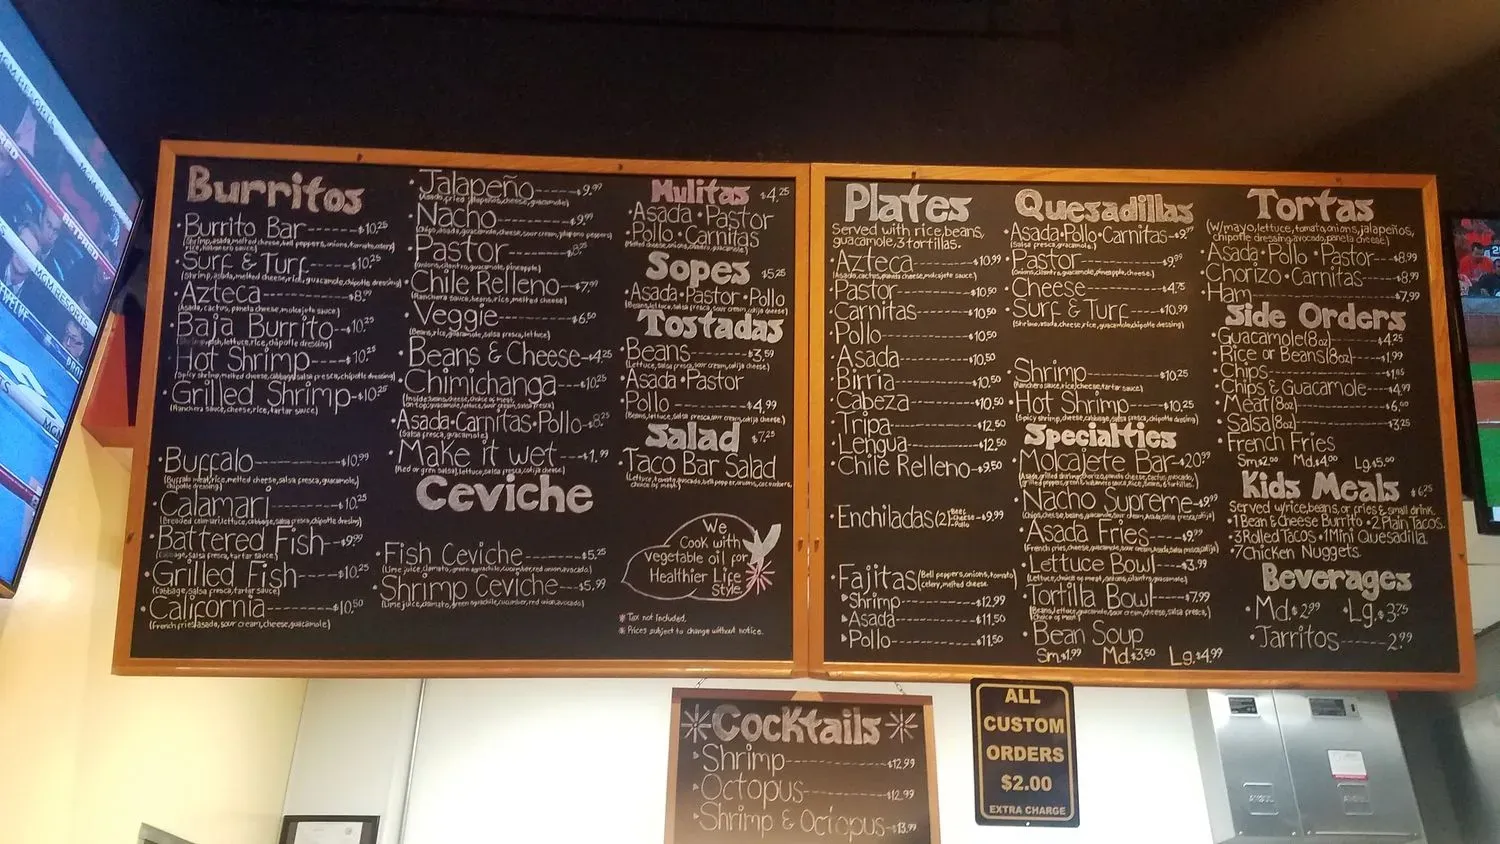 Burritos
Burrito Bar $10.25
(Shrimp, asada, melted cheese, bell peppers, onions, tomato, celery, rice, habanero sauce)
Surf & Turf $10.25
(Shrimp, asada, melted cheese, rice, guacamole, chipotle dressing)
Azteca $8.99
(Asada, cactus, panela cheese, molcajete sauce)
Baja Burrito $10.25
lettuce, rice, chipotle dressing)
Hot Shrimp $10.25
(Spicy shrimp, melted cheese, cabbage, salsa fresca, chipotle dressing)
Grilled Shrimp $10.25
(Ranchera sauce, cheese, rice, tartar sauce)
Buffalo $10.99
(Buffalo meat, rice, melted cheese, salsa fresca, guacamole, chipotle dressing)
Calamari $10.25
(Breaded calamari, lettuce, cabbage, salsa fresca, chipotle dressing)
Battered Fish $9.99
(Cabbage, salsa fresca, tartar sauce)
Grilled Fish $10.25
(Cabbage, salsa fresca, tartar sauce)
California $10.50
(French fries, asada, sour cream, cheese, guacamole)
Jalapeño $9.99
(Asada, fried jalapeños, cheese, guacamole)
Nacho $9.99
(Chips, asada, guacamole, cheese, sour cream, jalapeno peppers)
Pastor $8.25
(Onions, cilantro, guacamole, pineapple)
Chile Relleno $7.99
(Ranchera sauce, beans, rice, melted cheese)
Veggie $6.50
(Beans, rice, guacamole, salsa fresca, lettuce)
Beans & Cheese $4.25
Chimichanga $10.25
(Inside: beans, cheese, choice of meat,
on top: guacamole, lettuce, sour cream, salsa fresca)
Asada•Carnitas•Pollo $8.25
(Salsa fresca, guacamole)
Make it wet $1.99
(Red or gren salsa), lettuce, salsa fresca, cotija cheese)
Ceviche
Fish Ceviche $5.25
(Lime juice, clamato, green aguachile, cucumber, red onion, avocado)
Shrimp Ceviche $5.99
(Lime juice, clamato, green aguachile, cucumber, red onion, avocado)
Mulitas $4.25
Asada•Pastor
Pollo•Carnitas
(Melted cheese, onions, cilantro, guacamole)
Sopes $5.25
Asada•Pastor•Pollo
(Beans, lettuce, salsa fresca, sour cream, cotija cheese)
Tostadas
Beans $3.59
(Lettuce, salsa fresca, sour cream, cotija cheese)
Asada•Pastor
Pollo $4.99
(Beans, lettuce, salsa fresca, sour cream, cotija cheese)
Salad $7.25
Taco Bar Salad
(Lettuce, tomato, avocado, bell pepper, onions, cucumbers, choice of meat)
We
Cook with
vegetable oil for
Healthier Life
Style.
* Tax not included.
* Prices subject to change without notice.
Plates
Served with rice, beans,
guacamole, 3 tortillas.
Azteca $10.99
(Asada, cactus, panela cheese, molcajete sauce)
Pastor $10.50
Carnitas $10.50
Pollo $10.50
Asada $10.50
Birria $10.50
Cabeza $10.50
Tripa $12.50
Lengua $12.50
Chile Relleno $9.50
Enchiladas(2) Beef Cheese Pollo $9.99
Fajitas (Bell peppers, onions, tomato, celery, melted cheese
Shrimp $12.99
Asada $11.50
Pollo $11.50
Quesadillas
Asada•Pollo•Carnitas $9.99
(Salsa fresca, guacamole)
Pastor $9.99
(Onions, cilantro, guacamole, pineapple, cheese)
Cheese $4.75
Surf & Turf $10.99
(Shrimp, asada, cheese, rice, guacamole, chipotle dressing)
Shrimp $10.25
(Ranchera sauce, rice, cheese, tartar sauce)
Hot Shrimp $10.25
(Spicy shrimp, cheese, cabbage, salsa fresca, chipotle dressing)
Specialties
Molcajete Bar $20.99
Nacho Supreme $9.99
(Chips, cheese, beans, guacamole, sour cream, salsa fresca, cotija)
Asada Fries $9.99
(French fries, cheese, guacamole, sour cream, asada, salsa fresca, cotija)
Lettuce Bowl $3.99
(Lettuce, choice of meat, onions, cilantro, guacamole)
Tortilla Bowl $7.99
(Beans, lettuce, guacamole, sour cream, cheese, salsa fresca, choice of meat)
Bean Soup
Sm.$1.99 Md.$3.50 Lg.$4.99
Tortas
(W/mayo, lettuce, tomato, onions, jalapeños,
chipotle dressing, avocado, panela cheese)
Asada•Pollo•Pastor $8.99
Chorizo•Carnitas $8.99
Ham $7.99
Side Orders
Guacamole(8oz) $4.25
Rice or Beans(8oz) $1.99
Chips $1.85
Chips & Guacamole $4.99
Meat(8oz)
Salsa(8oz) $3.25
French Fries
Sm $2.00 Md.$4.00 Lg.$5.00
Kids Meals $6.25
Served w/rice, beans, or fries & small drink.
•1 Bean & Cheese Burrito •2 Plain Tacos.
•3 Rolled Tacos •1 Mini Quesadilla.
•7 Chicken Nuggets.
Beverages
Md.$2.99 Lg.$3.75
Jarritos 2.99
Cocktails
Shrimp $12.99
Octopus $12.99
Shrimp & Octopus $13.99
ALL
CUSTOM
ORDERS
$2.00
EXTRA CHARGE
MGM RESORTS
MGM RESORTS
ANSUL
ANSUL